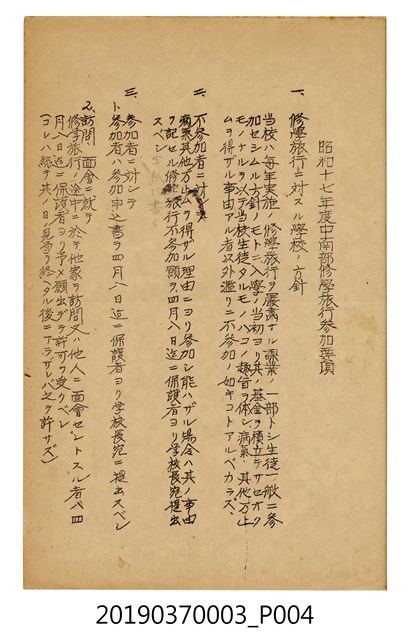 昭和十七年度中南部修學旅行参加要項
一、修學旅行ニ対スル學校ノ方針
当校ハ毎年実施ノ修學旅行ヲ厳粛ナル課業ノ一部トシ生徒一般ニ参
加セシムル方針ノモトニ入學ノ当初ヨリ其ノ基金ヲ積立テサセオク
モノナルヲ以テ当校生徒タルモノハコノ趣旨ヲ体シ病氣其他万止
ムヲ得ザル事由アル者以外濫リニ不参加ノ如キコトアルベカラズ、
二、不参加者ニ対シテ
病氣其他万止ムヲ得ザル理由ニヨリ参加シ能ハザル場合ハ其ノ事由
ヲ記セル修學旅行不参加願ヲ四月八日迄ニ保護者ヨリ学校長宛提出
スベシ
三、参加者ニ対シテ
1、参加者ハ参加申込書ヲ四月八日迄ニ保護者ヨリ学校長宛ニ提出スベシ
2、訪問、面會ニ就テ
修学旅行ノ途中ニ於テ他家ヲ訪問又ハ他人ニ面會セントスル者ハ四
月八日迄ニ保護者ヨリ予メ願出デテ許可ヲ受クベシ
(コレハ総テ其ノ日ノ見学ヲ終ヘタル後ニアラザレバ之ヲ許サズ)
20190370003_P004